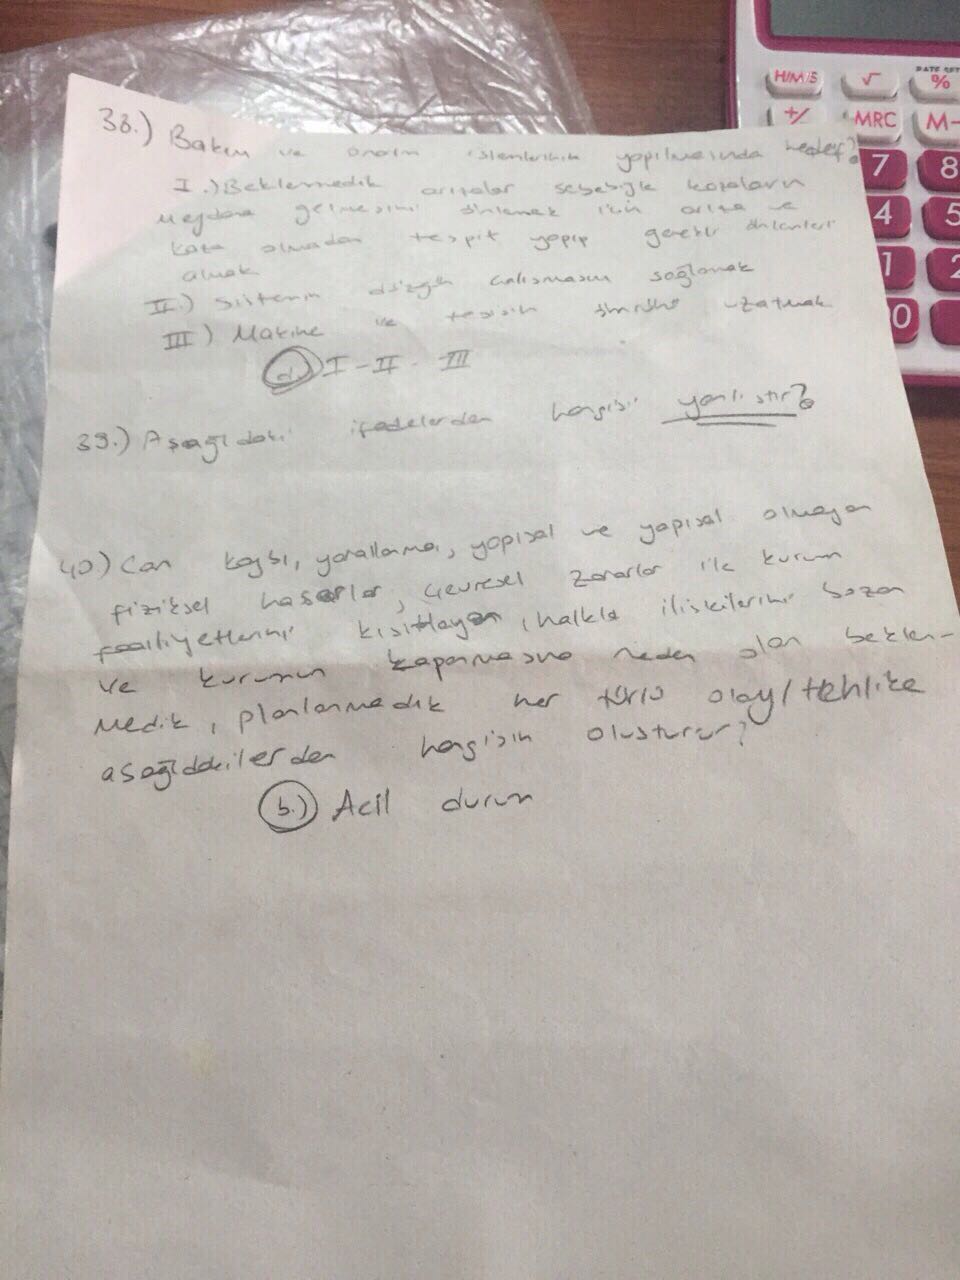 38.) Bakım ve onarım işlemlerinin yapılmasında hedef?
I.) Beklenmedik arızalar sebebiyle kazaların
meydana gelmesini önlemek için arıza ve
kaza olmadan tespit yapıp gerekli önlemleri
almak
II.) Sistemin düzgün çalışmasını sağlamak
III) Makine ve tesisin ömrünü uzatmak
d.) I - II - III
39.) Aşağıdaki ifadelerden hangisi yanlıştır?
40) Can kaybı, yaralanma, yapısal ve yapısal olmayan
fiziksel hasarlar, çevresel zararlar ile kurum
faaliyetlerini kısıtlayan, halkla ilişkilerini bozan
ve kurumun kapanmasına neden olan beklen-
medik, planlanmadık her türlü olay/tehlike
aşağıdakilerden hangisin oluşturur?
b.) Acil durum
H/M/S √ RATE SET %
+/ MRC M-
7 8
4 5
1 2
00